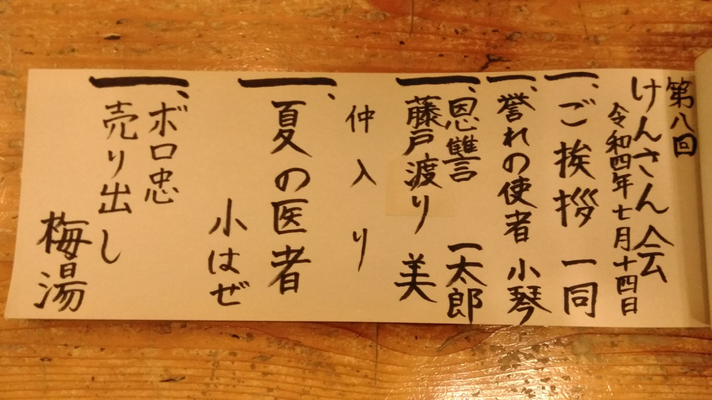 第八回
けんさん会
令和四年七月十四日
一、ご挨拶 一同
一、誉れの使者 小琴
一、恩讐
藤戸渡り 一太郎
美
仲入り
一、夏の医者
小はぜ
一、ボロ忠
売り出し
梅湯